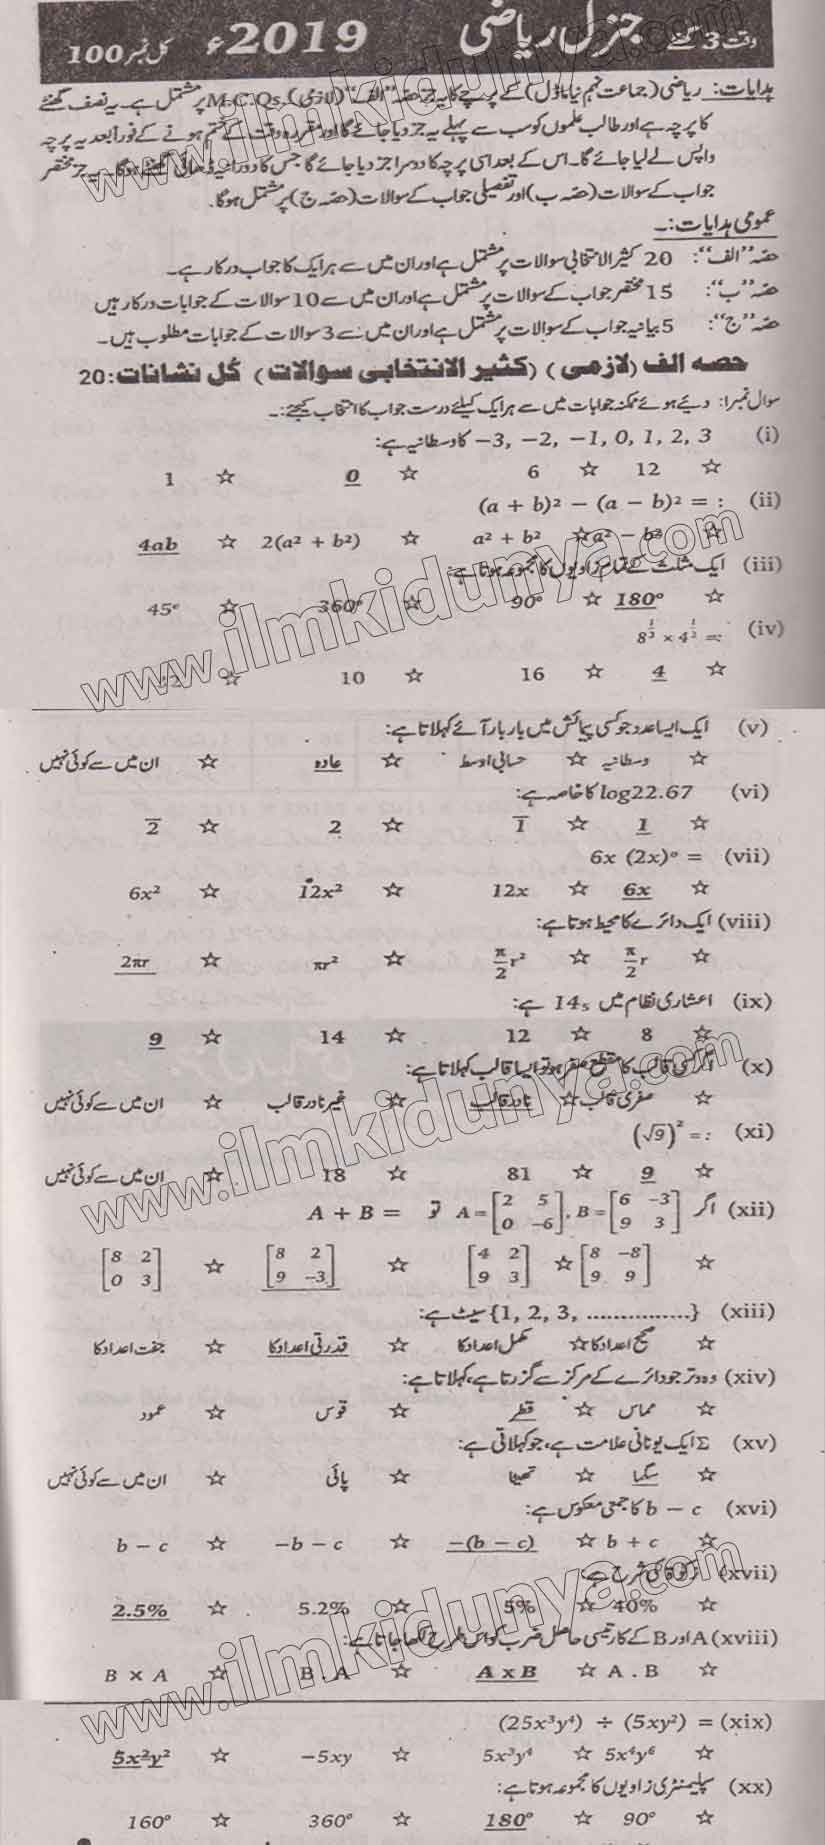 وقت 3 گھنٹے جنرل ریاضی 2019ء کل نمبر 100
ہدایات: ریاضی (جماعت نہم نیا ماڈل) کے پرچے کا یہ جز حصہ "الف" (لازمی) M.C.Qs پر مشتمل ہے۔ یہ نصف گھنٹے
کا پرچہ ہے اور طالب علموں کو سب سے پہلے یہ جز دیا جائے گا اور مقررہ وقت کے ختم ہونے کے فوراً بعد یہ پرچہ
واپس لے لیا جائے گا۔ اس کے بعد اسی پرچہ کا دوسرا جز دیا جائے گا جس کا دورانیہ ڈھائی گھنٹے ہوگا۔ یہ جز مختصر
جواب کے سوالات (حصہ ب) اور تفصیلی جواب کے سوالات (حصہ ج) پر مشتمل ہوگا۔
عمومی ہدایات:۔
حصہ "الف": 20 کثیر الانتخابی سوالات پر مشتمل ہے اور ان میں سے ہر ایک کا جواب درکار ہے۔
حصہ "ب": 15 مختصر جواب کے سوالات پر مشتمل ہے اور ان میں سے 10 سوالات کے جوابات درکار ہیں
حصہ "ج": 5 بیانیہ جواب کے سوالات پر مشتمل ہے اور ان میں سے 3 سوالات کے جوابات مطلوب ہیں۔
حصہ الف (لازمی) (کثیر الانتخابی سوالات) کُل نشانات: 20
سوال نمبر 1: دیئے ہوئے ممکنہ جوابات میں سے ہر ایک کیلئے درست جواب کا انتخاب کیجئے:۔
(i) −3, −2, −1, 0, 1, 2, 3 کا وسطانیہ ہے:
☆ 12 ☆ 6 ☆ 0 ☆ 1
(ii) (a + b)² − (a − b)² = :
☆ a² − b² ☆ a² + b² ☆ 2(a² + b²) ☆ 4ab
(iii) ایک مثلث کے تمام زاویوں کا مجموعہ ہوتا ہے:
☆ 180° ☆ 90° ☆ 360° ☆ 45°
(iv) 8^(1/3) × 4^(1/2) =:
☆ 4 ☆ 16 ☆ 10 ☆ 12
(v) ایک ایسا عدد جو کسی پیمائش میں بار بار آئے کہلاتا ہے:
☆ وسطانیہ ☆ حسابی اوسط ☆ عادہ ☆ ان میں سے کوئی نہیں
(vi) log22.67 کا خاصہ ہے:
☆ 1 ☆ 1̅ ☆ 2 ☆ 2̅
(vii) 6x (2x)° =
☆ 6x ☆ 12x ☆ 12x² ☆ 6x²
(viii) ایک دائرے کا محیط ہوتا ہے:
☆ π/2 r ☆ π/2 r² ☆ πr² ☆ 2πr
(ix) اعشاری نظام میں 14₅ ہے:
☆ 8 ☆ 12 ☆ 14 ☆ 9
(x) اگر کسی قالب کا مقطع صفر ہو تو ایسا قالب کہلاتا ہے:
☆ صفری قالب ☆ نادر قالب ☆ غیر نادر قالب ☆ ان میں سے کوئی نہیں
(xi) (√9)² =:
☆ 9 ☆ 81 ☆ 18 ☆ ان میں سے کوئی نہیں
(xii) اگر A = [2 5; 0 −6], B = [6 −3; 9 3] تو A + B =
☆ [8 −8; 9 9] ☆ [4 2; 9 3] ☆ [8 2; 9 −3] ☆ [8 2; 0 3]
(xiii) {1, 2, 3, ................} سیٹ ہے:
☆ صحیح اعداد کا ☆ مکمل اعداد کا ☆ قدرتی اعداد کا ☆ جفت اعداد کا
(xiv) وہ وتر جو دائرے کے مرکز سے گزرتا ہے، کہلاتا ہے:
☆ مماس ☆ قطر ☆ قوس ☆ عمود
(xv) Σ ایک یونانی علامت ہے، جو کہلاتی ہے:
☆ سگما ☆ تھیٹا ☆ پائی ☆ ان میں سے کوئی نہیں
(xvi) b − c کا جمعی معکوس ہے:
☆ b + c ☆ −(b − c) ☆ −b − c ☆ b − c
(xvii) زکوٰۃ کی شرح ہے:
☆ 40% ☆ 5% ☆ 5.2% ☆ 2.5%
(xviii) A اور B کے کارتیسی حاصل ضرب کو اس طرح لکھا جاتا ہے:
☆ A . B ☆ A x B ☆ B . A ☆ B × A
(xix) (25x³y⁴) ÷ (5xy²) =
☆ 5x⁴y⁶ ☆ 5x³y⁴ ☆ −5xy ☆ 5x²y²
(xx) سپلیمنٹری زاویوں کا مجموعہ ہوتا ہے:
☆ 90° ☆ 180° ☆ 360° ☆ 160°
www.ilmkidunya.com
www.ilmkidunya.com
www.ilmkidunya.com
www.ilmkidunya.com